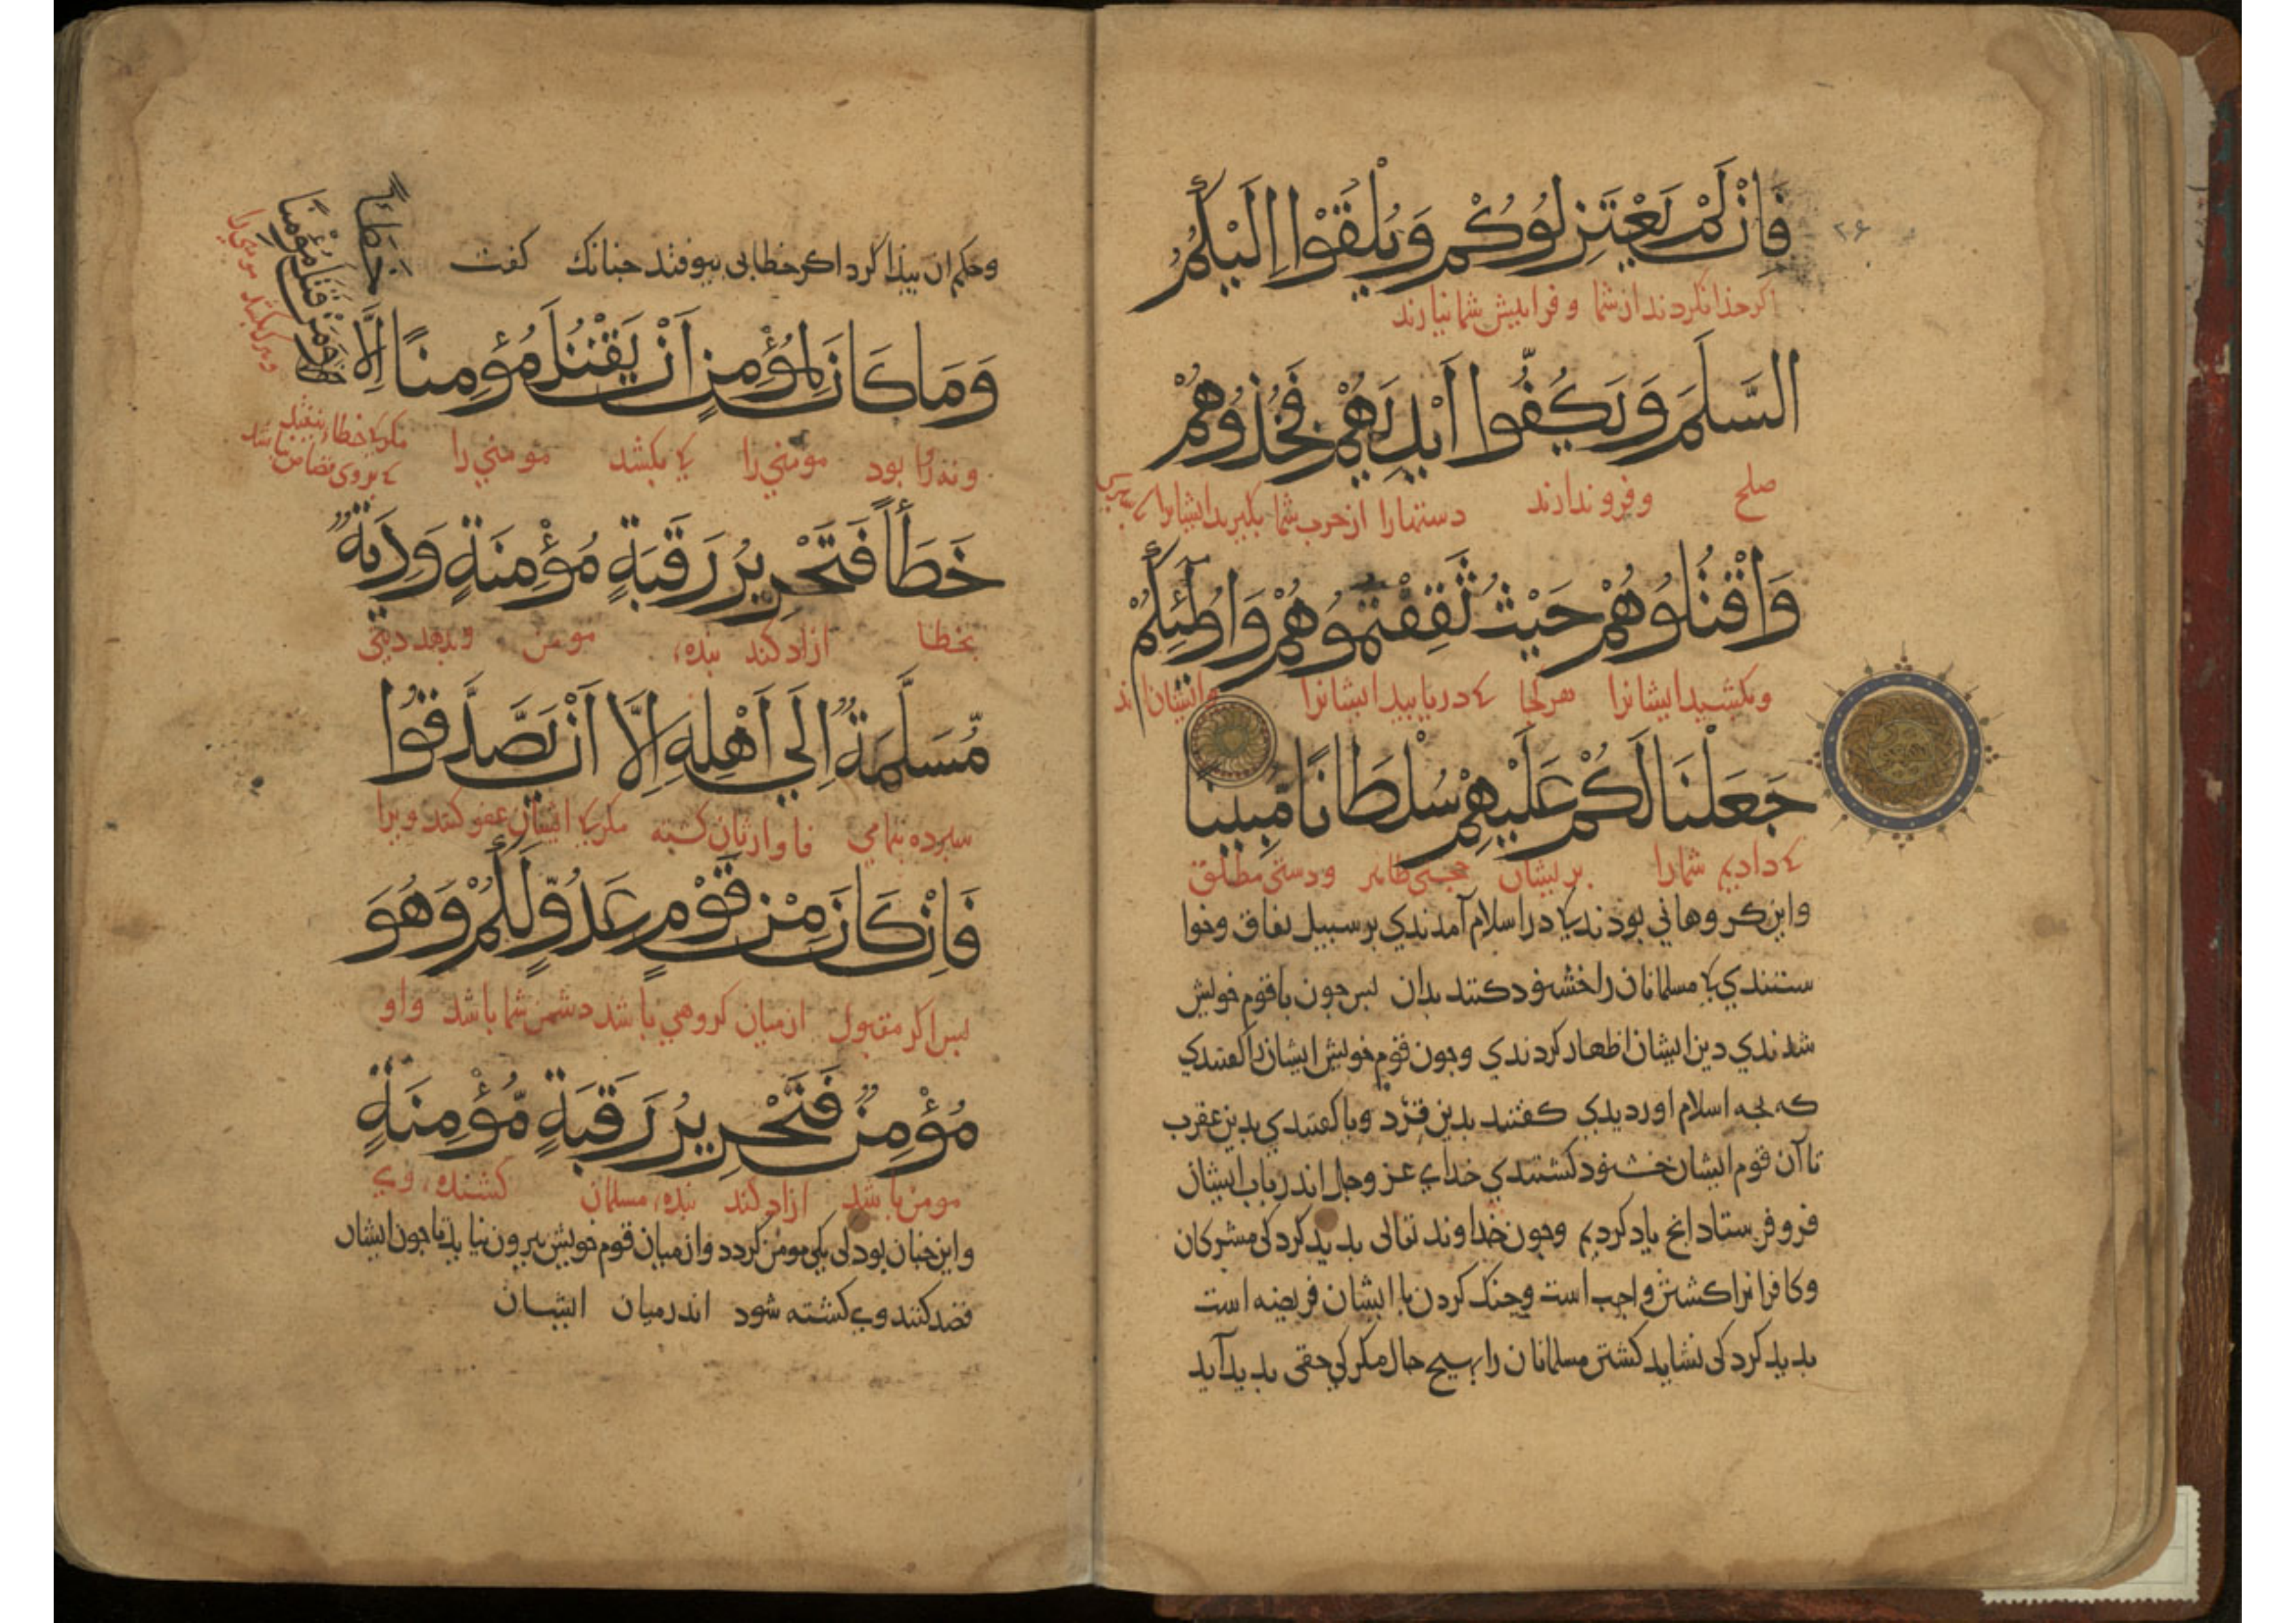 فَاِنْ لَمْ يَعْتَزِلُوكُمْ وَيُلْقُوا اِلَيْكُمُ
۲۶
اکر حذا نکردند از شما و فرا پیش شما نیارند
السَّلَمَ وَيَكُفُّوا اَيْدِيَهُمْ فَخُذُوهُمْ
صلح وفرو ندارند دستهارا از حرب شما بکیرید ایشانرا
وَاقْتُلُوهُمْ حَيْثُ ثَقِفْتُمُوهُمْ وَاُولٰئِكُمْ
وبکشید ایشانرا هر کجا که دریابید ایشانرا وایشان اند
جَعَلْنَا لَكُمْ عَلَيْهِمْ سُلْطَانًا مُبِينًا
که دادیم شمارا بریشان حجتی ظاهر ودستی مطلق
واین کروهانی بودند کی در اسلام آمدندی بر سبیل نفاق وخوا
ستندی کی مسلمانان را خشنود کنند بدان پس جون با قوم خویش
شدندی دین ایشان اظهار کردندی وجون قوم خویش ایشان را کفتندی
که بجه اسلام اوردیدی کفتند بدین قرد وبا کفتندی بدین عقرب
تا آن قوم ایشان خشنود کشتندی خدای عز وجل اندر باب ایشان
فرو فرستاد انج یاد کردیم وجون خداوند تعالی بدید کرد کی مشرکان
وکافرانرا کشتن واجب است وجنک کردن با ایشان فریضه است
بدید کرد کی نشاید کشتن مسلمانان را بهیج حال مکر کی حقی بدید آید
وحکم ان بیدا کرد اکر خطایی بیوفتد جنانک کفت
وَمَا كَانَ لِمُؤْمِنٍ اَنْ يَقْتُلَ مُؤْمِنًا اِلَّا
خَطَـًٔا
وَمَنْ قَتَلَ مُؤْمِنًا
وهرکی بکشد مومنی را
ونه روا بود مومنی را کی بکشد مومنی را مکر کی خطاء بیفتد
که بروی قصاص نباشد
خَطَأً فَتَحْرِيرُ رَقَبَةٍ مُؤْمِنَةٍ وَدِيَةٌ
بخطا ازاد کند بنده، مومن وبدهد دیتی
مُسَلَّمَةٌ اِلَي اَهْلِهِ اِلَّا اَنْ يَصَّدَّقُوا
سپرده بتمامی فا وارثان کشته مکر کی ایشان عفو کنند ویرا
فَاِنْ كَانَ مِنْ قَوْمٍ عَدُوٍّ لَكُمْ وَهُوَ
پس اکر مقتول از میان کروهی باشد دشمن شما باشد واو
مُؤْمِنٌ فَتَحْرِيرُ رَقَبَةٍ مُؤْمِنَةٍ
مومن باشد ازاد کند بنده، مسلمان کشنده، وی
واین جنان بود کی یکی مومن کردد واز میان قوم خویش بیرون نیاید تا جون ایشان
قصد کنند وی کشته شود اندر میان ایشان